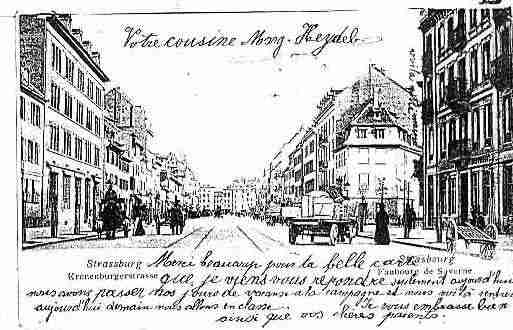 Votre cousine Mong. Heydel
Strassburg
Kronenburgerstrasse
Strasbourg
Faubourg de Saverne
Merci beaucoup pour la belle carte
que je viens vous répondre seulement aujourd'hui
nous avons passer nos jours de vacance a la campagne et nous
aujourd'hui demain nous allons en classe. Je vous embrasse bien
ainsi que vos chères parents.